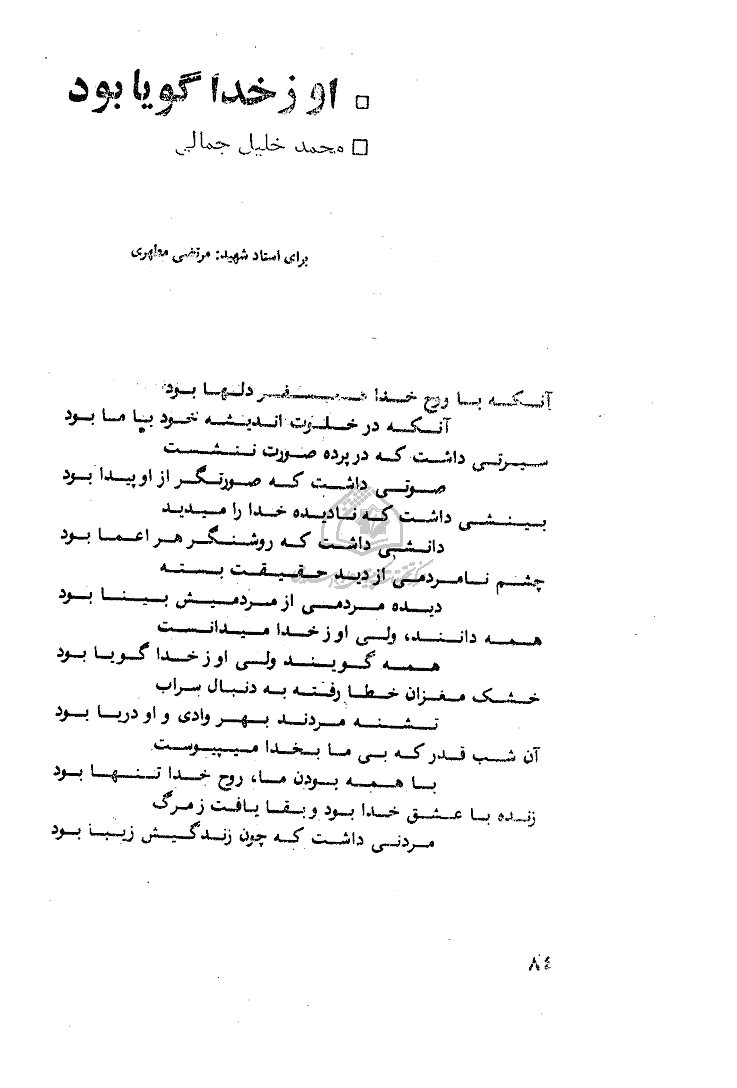 □ او ز خدا گویا بود
□ محمد خلیل جمالی
برای استاد شهید: مرتضی مطهری
آنکه با روح خدا دلها بود
آنکه در خلوت اندیشه خود بپا ما بود
سیرتی داشت که در پرده صورت ننشست
صوتی داشت که صورتگر از او پیدا بود
بینشی داشت که نادیده خدا را میدید
دانشی داشت که روشنگر هر اعما بود
چشم نامردمی از دید حقیقت بسته
دیده مردمی از مردمیش بینا بود
همه دانند، ولی او ز خدا میدانست
همه گویند ولی او ز خدا گویا بود
خشک مغزان خطا رفته به دنبال سراب
تشنه مردند بهر وادی و او دریا بود
آن شب قدر که بی ما بخدا میپیوست
با همه بودن ما، روح خدا تنها بود
زنده با عشق خدا بود و بقا یافت ز مرگ
مردنی داشت که چون زندگیش زیبا بود
۸۴